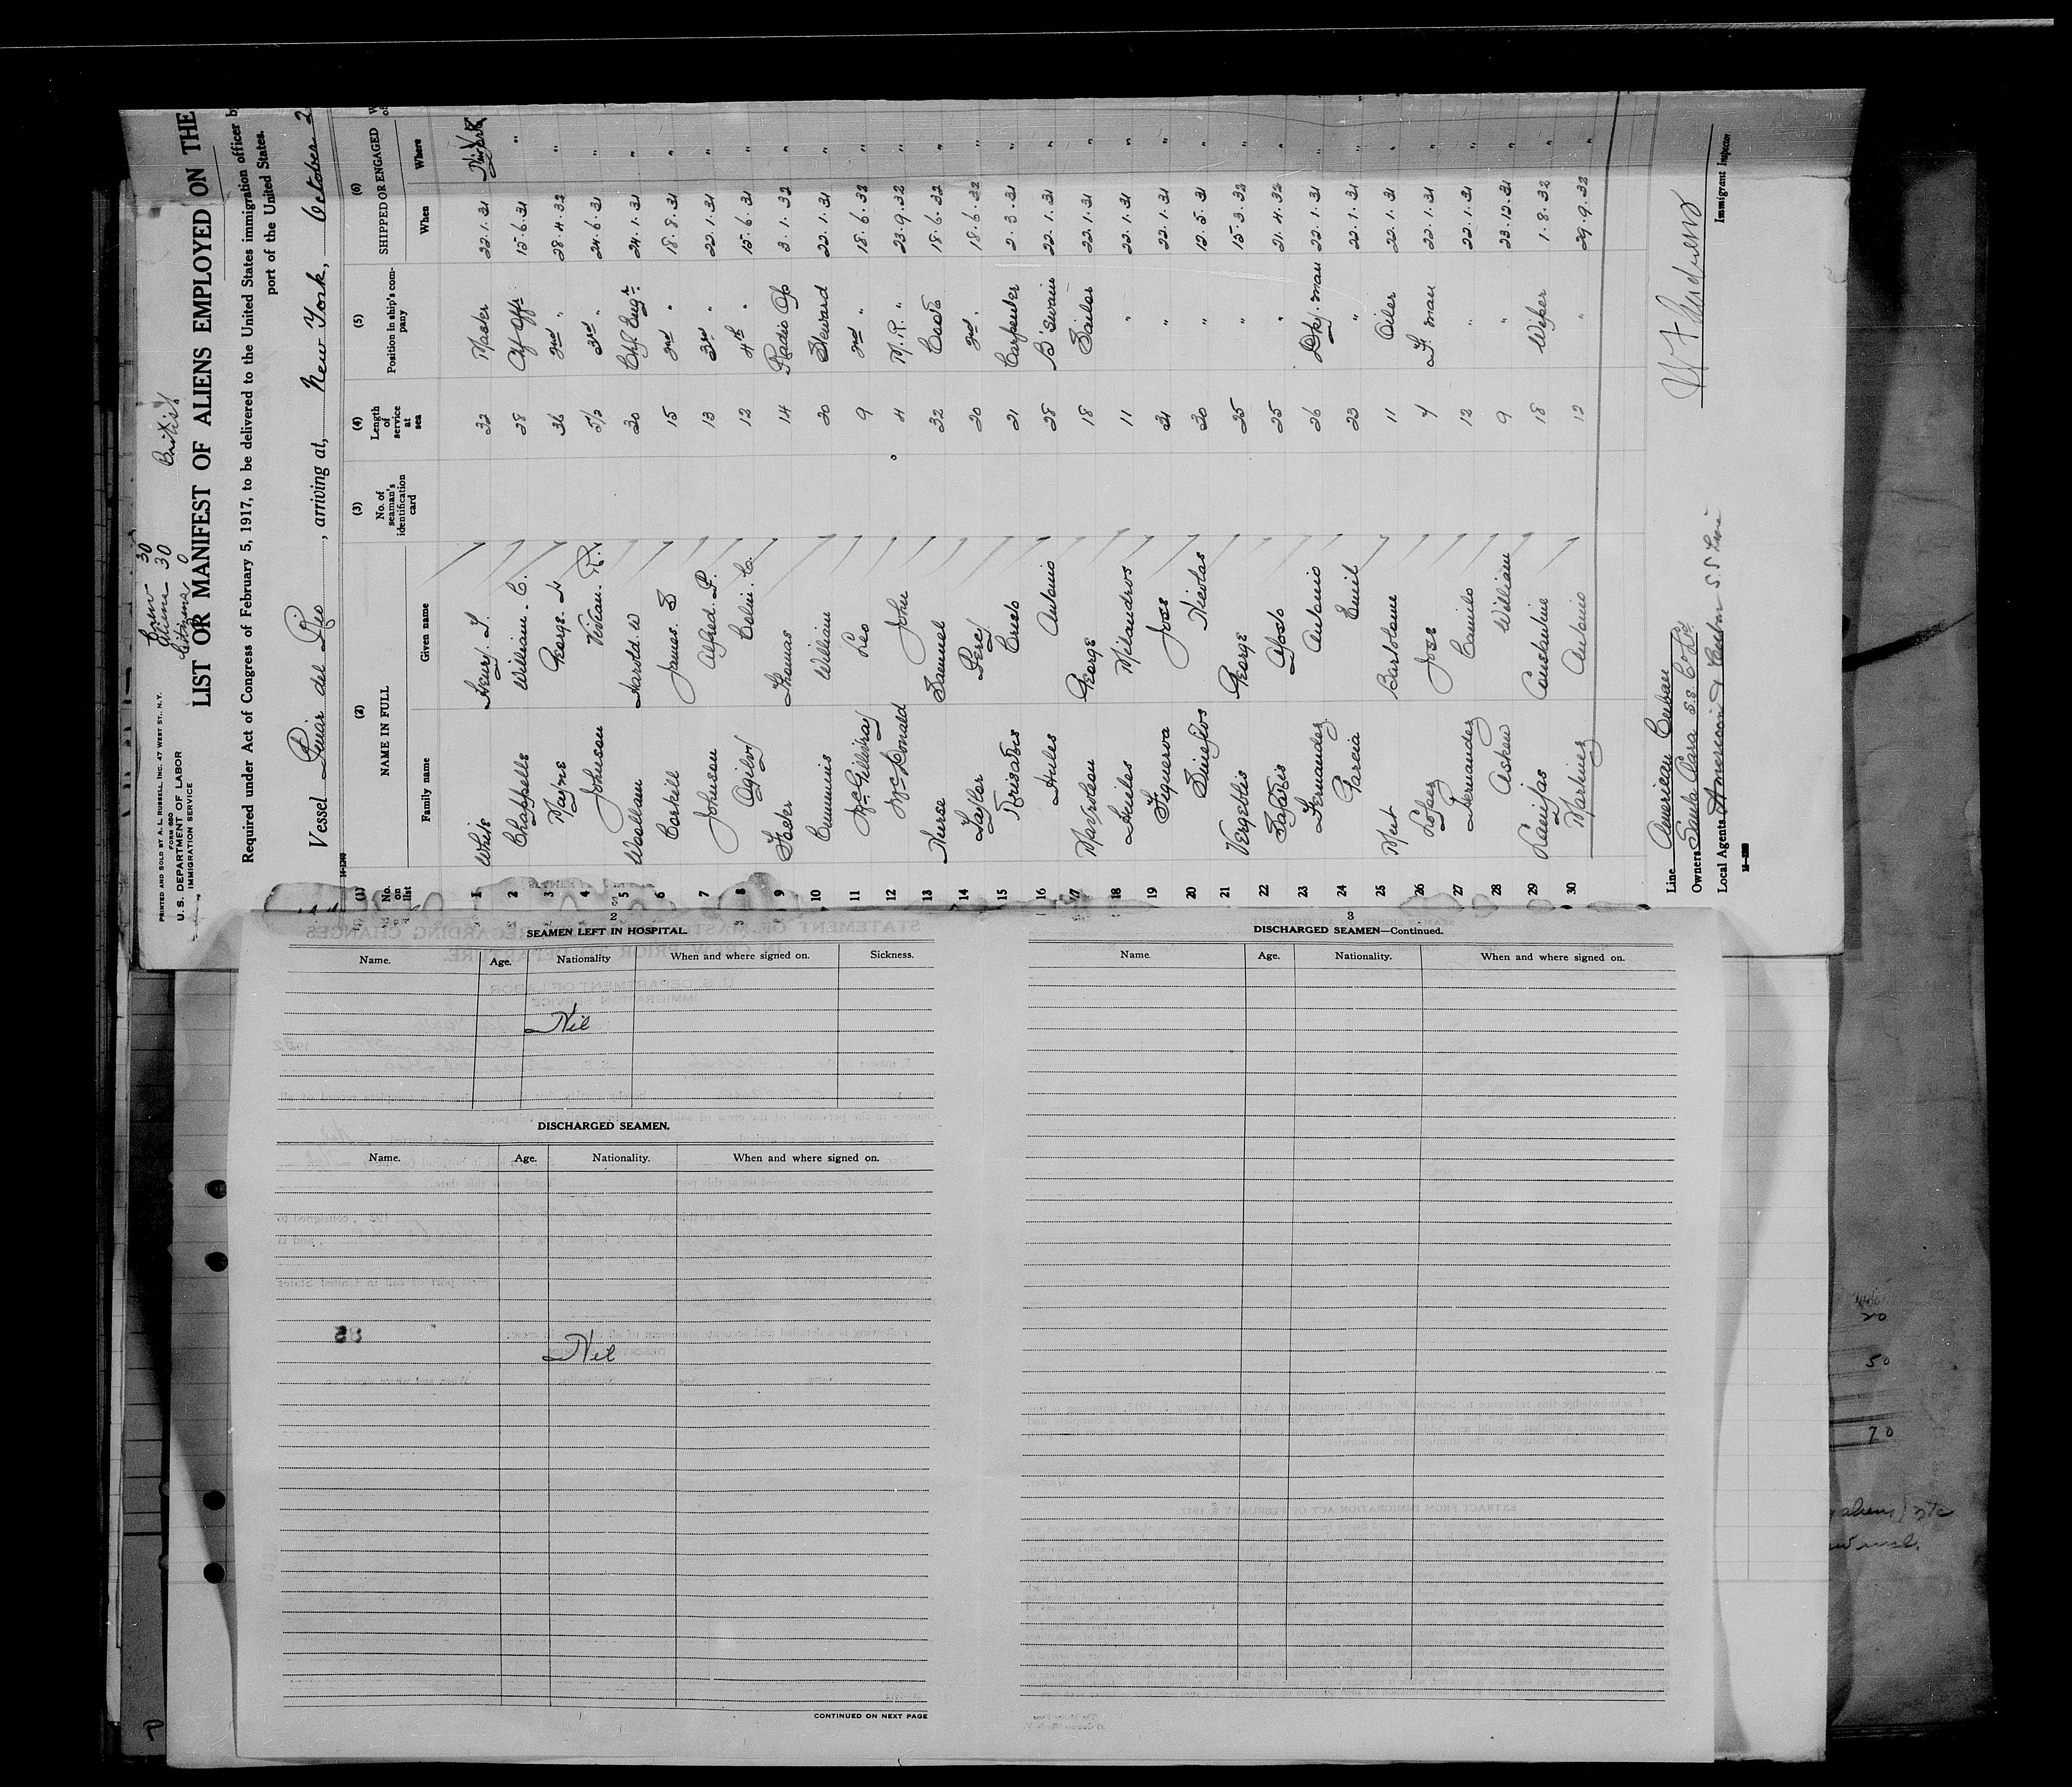 Crew 30
Aliens 30
Citizens 0
British
PRINTED AND SOLD BY A. L. RUSSELL, INC. 47 WEST ST., N.Y.
FORM 680
U. S. DEPARTMENT OF LABOR
IMMIGRATION SERVICE
LIST OR MANIFEST OF ALIENS EMPLOYED ON THE
Required under Act of Congress of February 5, 1917, to be delivered to the United States immigration officer b
port of the United States.
Vessel Pinar del Rio, arriving at, New York, October 2
(1) (2) (3) (4) (5) (6)
No. on list NAME IN FULL No. of seaman's identification card Length of service at sea Position in ship's company SHIPPED OR ENGAGED
Family name Given name When Where
1 White Henry T. 32 Master 22.1.31 N. York
2 Chappells William. C. 28 Chf Offr 15.6.31 "
3 Mayne George. 36 2nd " 28.4.32 "
4 Johnson Vivian. R. 5½ 3rd . 24.6.31 "
5 Woollam Harold. W 30 Chf. Engr. 24.1.31 "
6 Corkill James. S 15 2nd " 18.8.31 "
7 Johnson Alfred. P. 13 3rd " 22.1.31 "
8 Ogilvy Colin. C. 12 4th " 15.6.31 "
9 Thomas 14 Radio Op 3.1.32 "
10 Cummins William 20 Steward 22.1.31 "
11 McGillivray Leo 9 2nd " 18.6.32 "
12 McDonald John 4 M.R. " 23.9.32 "
13 Nurse Samuel 32 Cook 18.6.32 "
14 Taylor Percy 20 2nd . 18.6.32 "
15 Cristo 21 Carpenter 2.3.31 "
16 Antonio 28 B Swain 22.1.31 "
17 George 18 Sailor 22.1.31 "
18 Milandros 11 " 22.1.31 "
19 Figuerva Jose 31 " 22.1.31 "
20 Nicolas 30 " 12.5.31 "
21 George 25 " 15.3.32 "
22 25 " 21.4.32 "
23 Fernandez Antonio 26 Dky. man 22.1.31 "
24 Garcia Emil 23 " 22.1.31 "
25 Mut Bartolome 11 Oiler 22.1.31 "
26 Lopez Jose 7 F. man 22.1.31 "
27 Fernandez Camilo 12 " 22.1.31 "
28 Askew William 9 " 23.12.31 "
29 Constantine 18 Wiper 1.8.32 "
30 Martinez Antonio 12 " 29.9.32 "
Line American Cuban
Owners Santa Clara S.S. Co Ltd
Local Agents American & Cuban S.S. Line
Immigrant Inspector
2
SEAMEN LEFT IN HOSPITAL.
Name. Age. Nationality When and where signed on. Sickness.
Nil
DISCHARGED SEAMEN.
Name. Age. Nationality. When and where signed on.
Nil
CONTINUED ON NEXT PAGE
3
DISCHARGED SEAMEN—Continued.
Name. Age. Nationality. When and where signed on.
20
50
70